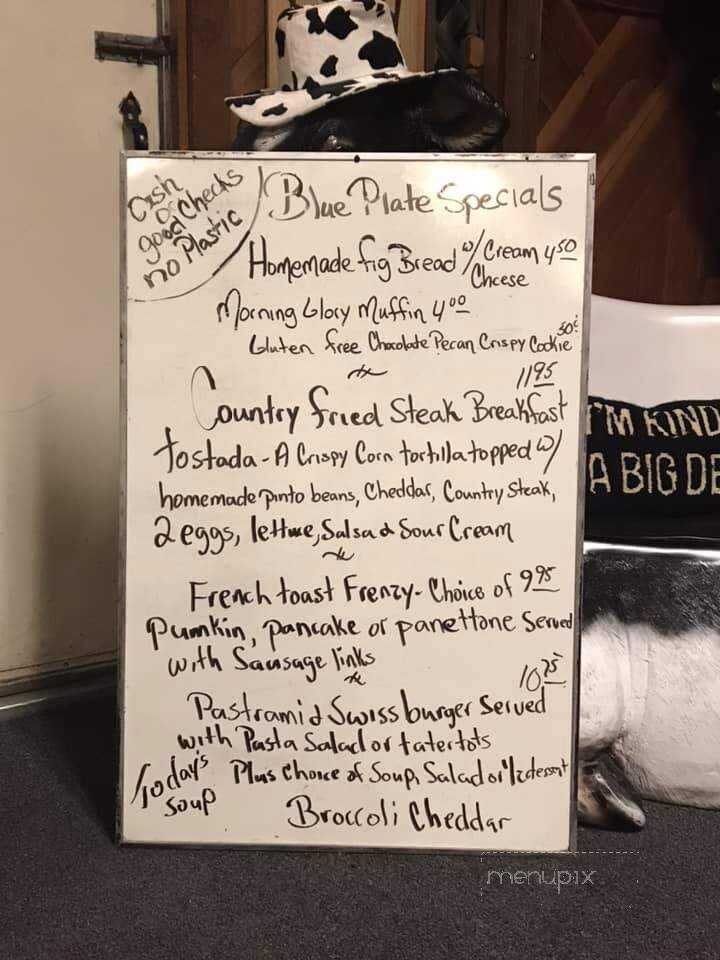 Cash
or
good Checks
no Plastic
Blue Plate Specials
Homemade fig Bread w/ Cream Cheese 4 50
Morning Glory Muffin 4 00
Gluten free Chocolate Pecan Crispy Cookie 50¢
11 95
Country fried Steak Breakfast
tostada - A Crispy Corn tortilla topped w/
homemade pinto beans, Cheddar, Country Steak,
2 eggs, lettuce, Salsa & Sour Cream
French toast Frenzy - Choice of 9 95
Pumkin, pancake or panettone Served
with Sausage links
10 75
Pastrami & Swiss burger Served
with Pasta Salad or tater tots
Plus Choice of Soup, Salad or 1/2 dessert
Today's
Soup
Broccoli Cheddar
I'M KIND
A BIG DE
menupix